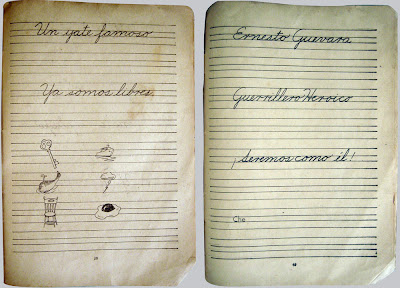 Un yate famoso
Ya somos libres
Ernesto Guevara
Guerrillero Heroico
¡Seremos como él!
Che